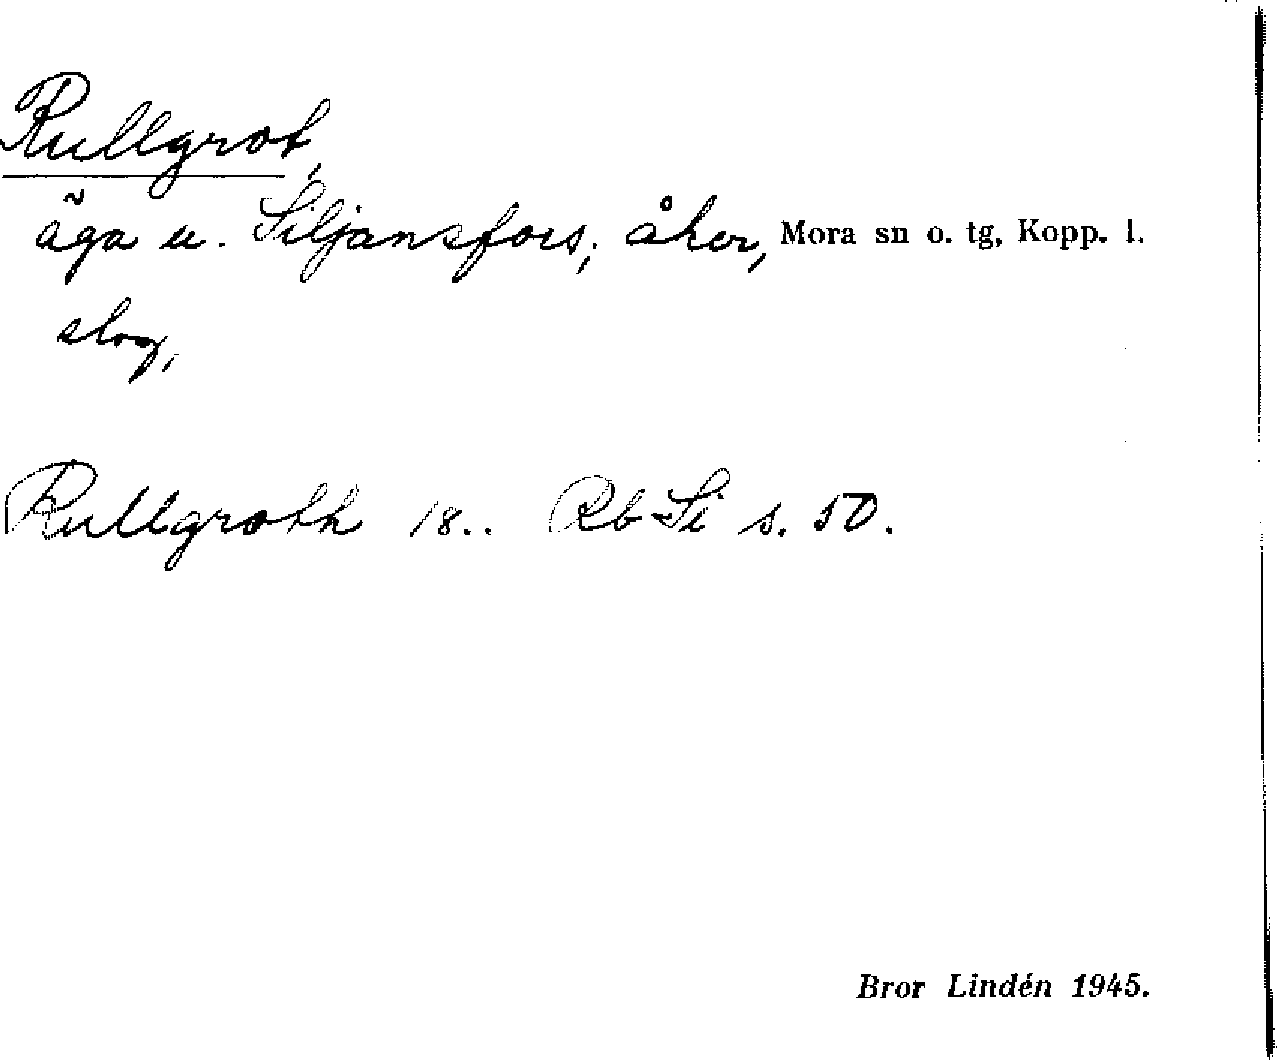 Rullgrot,
äga u. Siljansfors; åker, Mora sn o. tg, Kopp. l.
slog,
Rullgroth 18.. Rb Si s. 50.
Bror Lindén 1945.